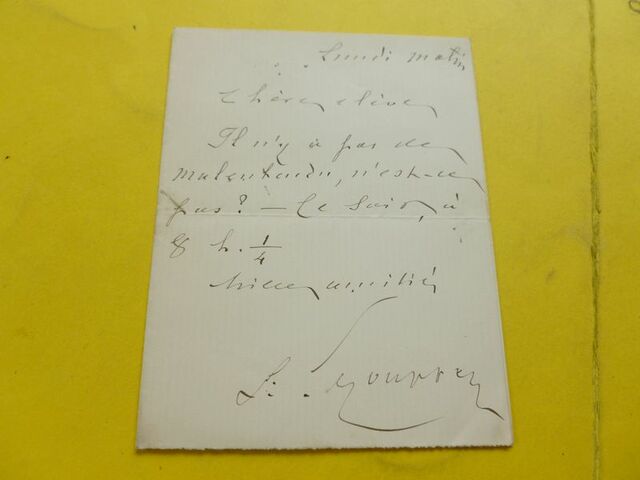 Lundi matin
Chère élève
Il n'y a pas de
malentendu, n'est-ce
pas? — Ce soir, à
8 h. 1/4
Mille amitiés
L.